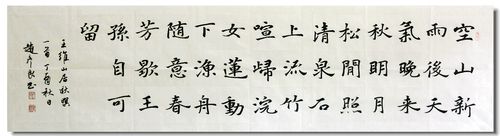 空山新
雨後天
氣晚来
秋明月
松間照
清泉石
上流竹
喧歸浣
女蓮動
下漁舟
随意春
芳歇王
孫自可
留
王維山居秋暝
一首丁酉秋日
趙彦良书